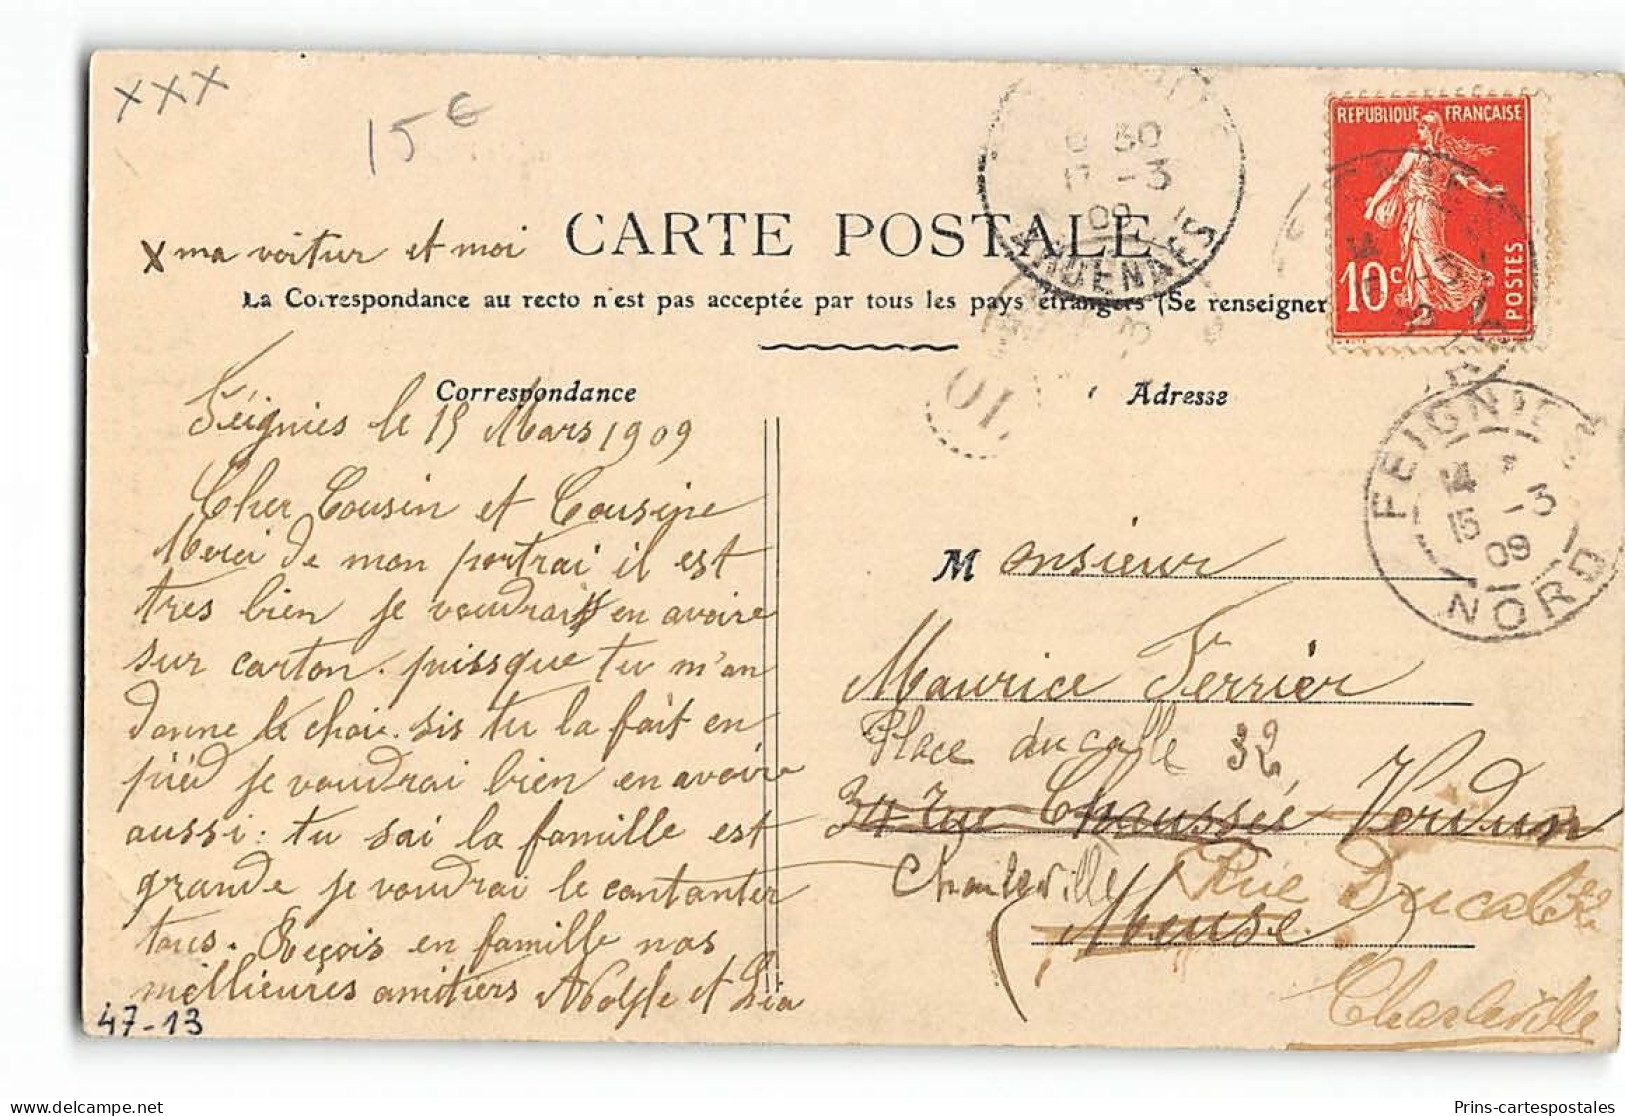 xxx
15€
REPUBLIQUE FRANÇAISE
10c
POSTES
6 30
17 -3
09
ARDENNES
CARTE POSTALE
x ma voitur et moi
La Correspondance au recto n'est pas acceptée par tous les pays étrangers (Se renseigner
Correspondance
Adresse
FEIGNIES
14
15 -3
09
NORD
Féignies le 15 Mars 1909
Cher Cousin et Cousine
Merci de mon portrai il est
tres bien je voudrais en avoire
sur carton. puissque tu m'an
donne le choi. sis tu la fait en
pièd je voudrai bien en avoire
aussi: tu sai la famille est
grande je voudrai le contanter
tous. Reçois en famille nos
meillieures amitiers Adolfe et Léa
Monsieur
Maurice Terrier
Place ducalle 32
34 rue Chaussée Verdun
Charleville
Rue Ducale 32
(Meuse)
Charleville
47-13
Prins-cartespostales